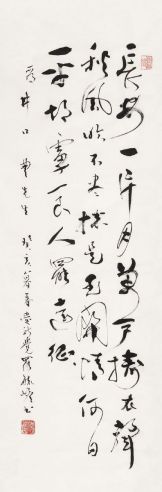 長安一片月萬戶搗衣聲
秋風吹不盡總是玉關情何日
平胡虜良人罷遠征
井口
先生 癸亥暮春
書